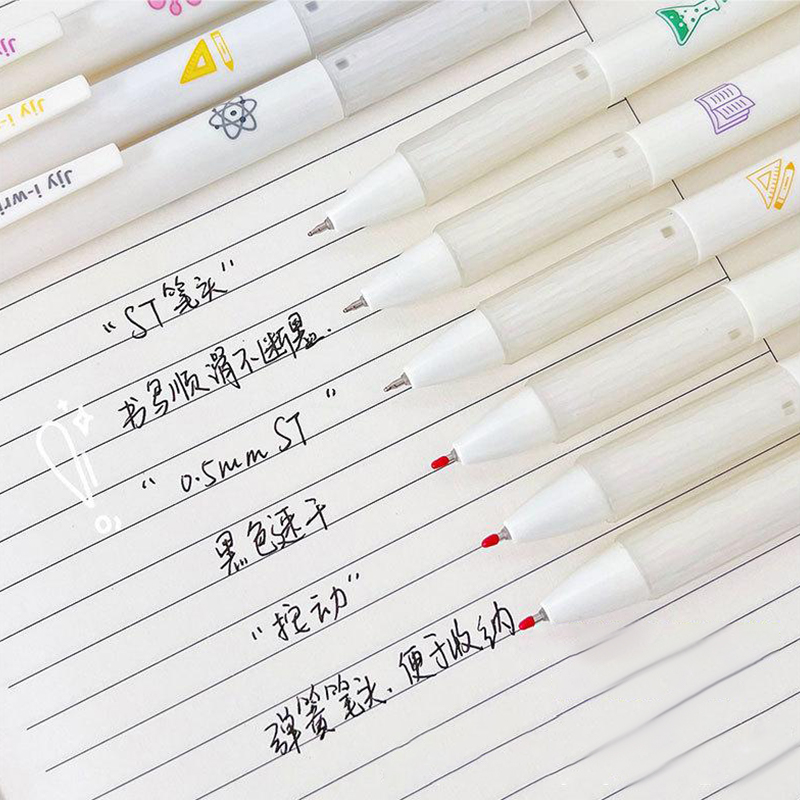 Jjy
Jjy i-
Jjy i-wri
“ST笔头”
书写顺滑不断墨.
“0.5mm ST”
黑色速干
“按动”
弹簧笔头.便于收纳